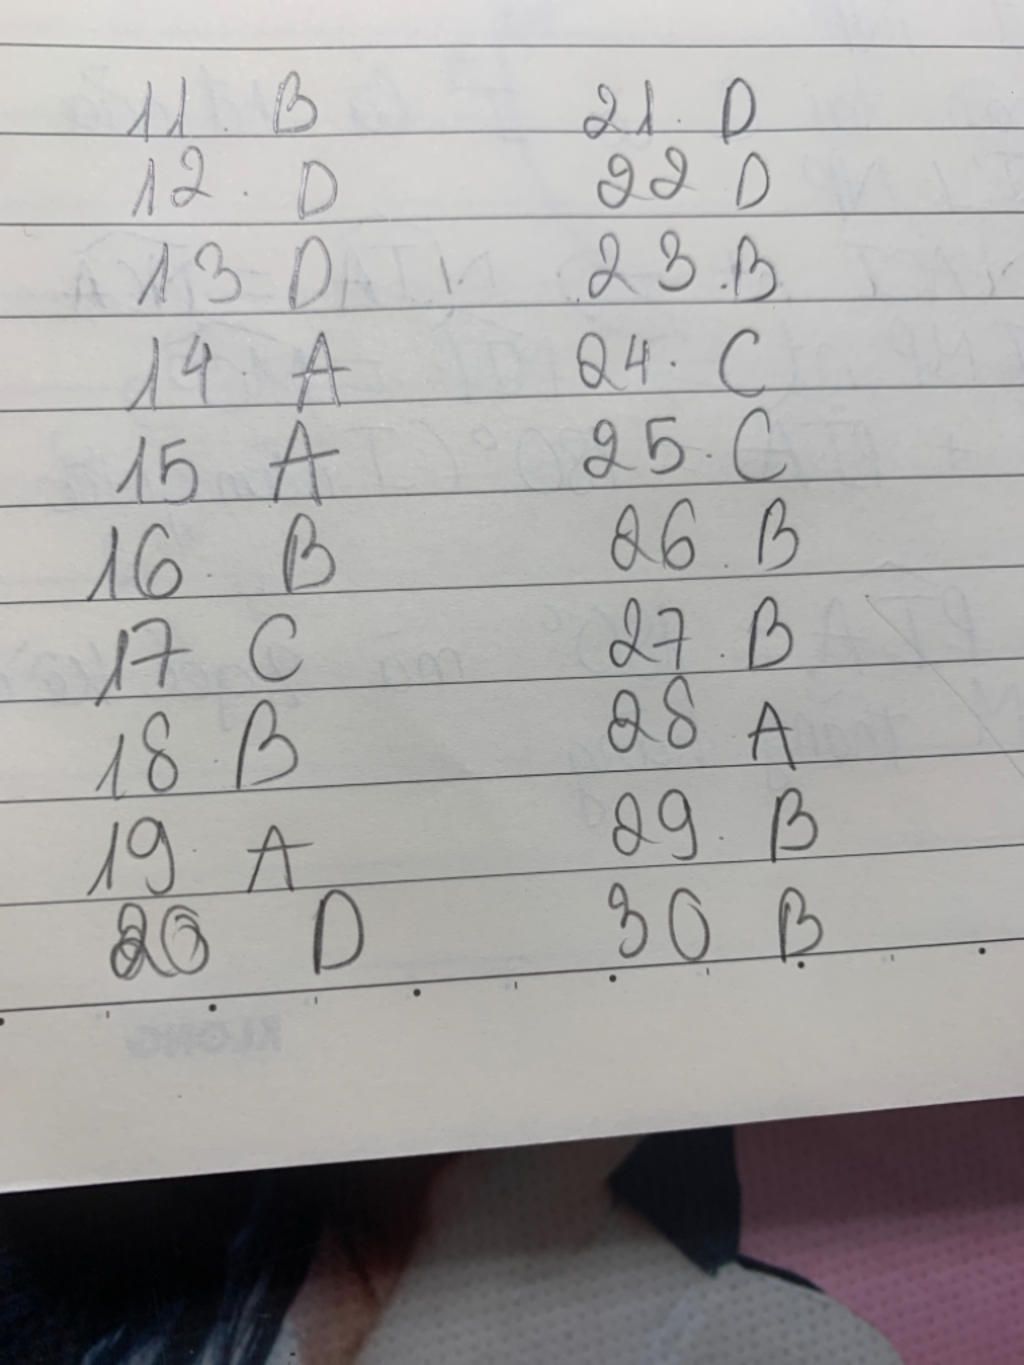 11. B
12. D
13 D
14. A
15 A
16. B
17 C
18. B
19. A
20 D
21. D
22 D
23. B
24. C
25. C
26. B
27. B
28 A
29. B
30 B
KLONG